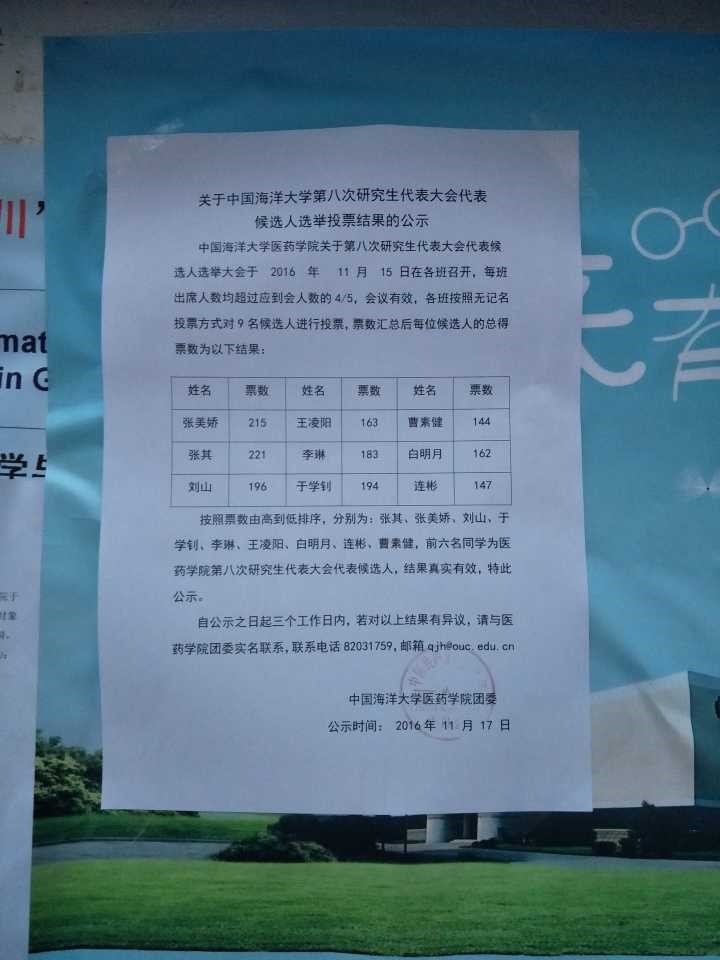 关于中国海洋大学第八次研究生代表大会代表
候选人选举投票结果的公示
中国海洋大学医药学院关于第八次研究生代表大会代表候
选人选举大会于 2016 年 11 月 15 日在各班召开，每班
出席人数均超过应到会人数的 4/5，会议有效，各班按照无记名
投票方式对 9 名候选人进行投票，票数汇总后每位候选人的总得
票数为以下结果：
姓名 票数 姓名 票数 姓名 票数
张美娇 215 王凌阳 163 曹素健 144
张其 221 李琳 183 白明月 162
刘山 196 于学钊 194 连彬 147
按照票数由高到低排序，分别为：张其、张美娇、刘山、于
学钊、李琳、王凌阳、白明月、连彬、曹素健，前六名同学为医
药学院第八次研究生代表大会代表候选人，结果真实有效，特此
公示。
自公示之日起三个工作日内，若对以上结果有异议，请与医
药学院团委实名联系，联系电话 82031759，邮箱 qjh@ouc.edu.cn
中国海洋大学医药学院团委
公示时间： 2016 年 11 月 17 日
川"
mat
in G
学与
院于
对象
有